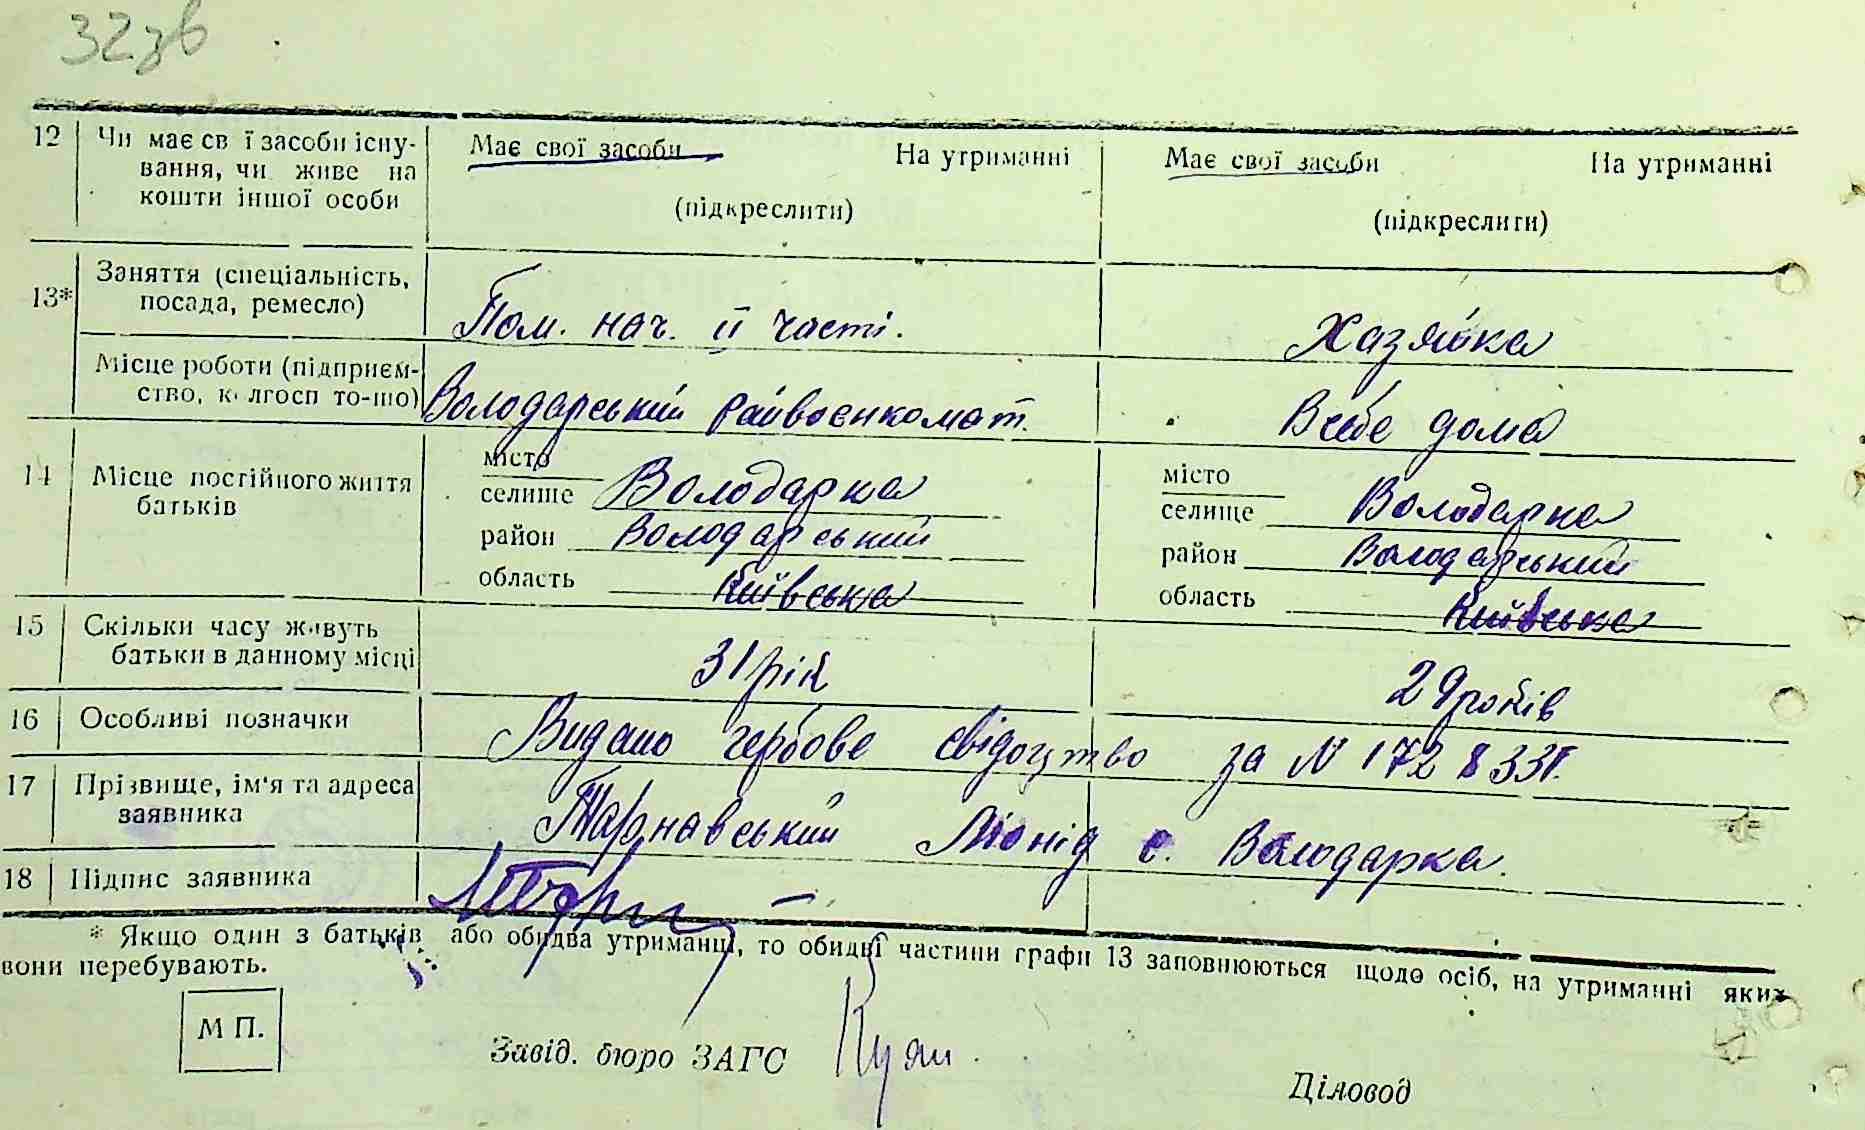 32зв
12 Чи має св ї засоби існу- Має свої засоби На утриманні Має свої засоби На утриманні
вання, чи живе на
кошти іншої особи (підкреслити) (підкреслити)
13* Заняття (спеціальність,
посада, ремесло) Пом. нач. II части. Хазяйка
Місце роботи (підприєм-
ство, к лгосп то-що) Володарський райвоєнкомат. В себе дома
14 Місце постійного життя
батьків
місто
селище Володарка
район Володарський
область Київська
місто
селище Володарка
район Володарський
область Київська
15 Скільки часу живуть
батьки в данному місці 31 рік 29 років
16 Особливі позначки Видано гербове свідоцтво за N 1728331.
17 Прізвище, ім'я та адреса
заявника Тарнавський Ліонід с. Володарка.
18 Підпис заявника
* Якщо один з батьків або обидва утриманці, то обидві частини графи 13 заповнюються щодо осіб, на утриманні яких
вони перебувають.
М П.
Завід. бюро ЗАГС
Діловод